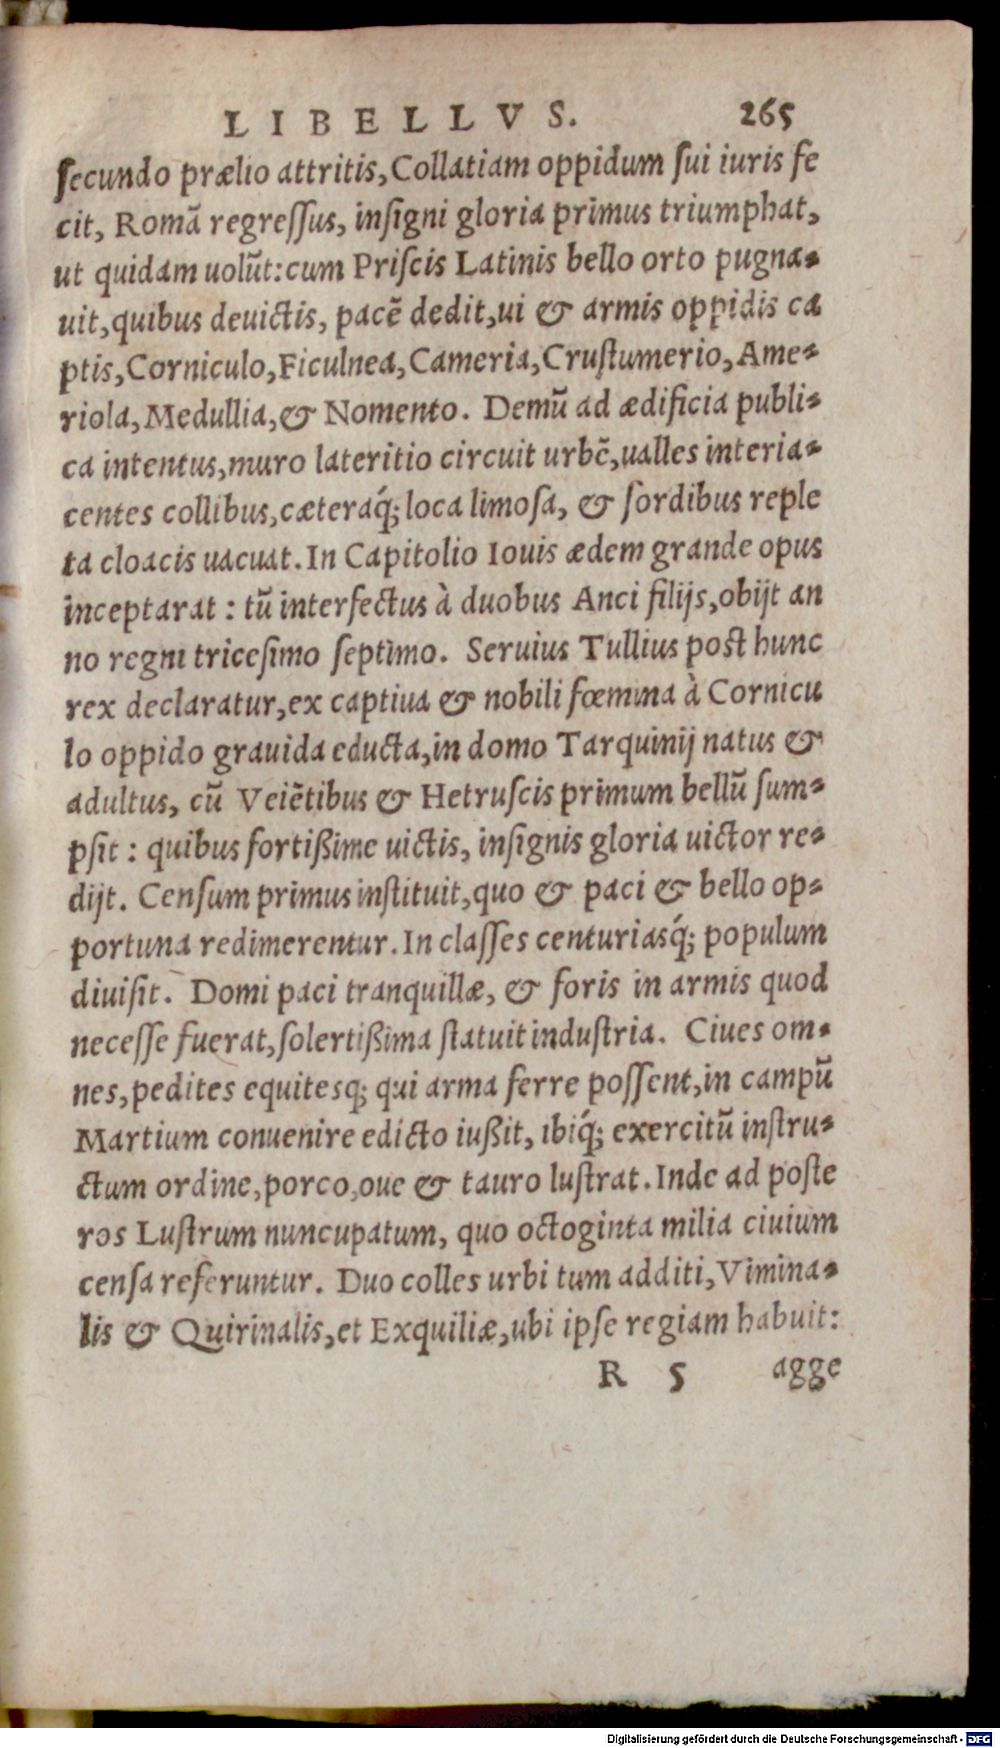 LIBELLVS. 265
ſecundo prælio attritis, Collatiam oppidum ſui iuris fe
cit, Romā regreſſus, inſigni gloria primus triumphat,
ut quidam uolūt: cum Priſcis Latinis bello orto pugna-
uit, quibus deuictis, pacē dedit, ui & armis oppidis ca
ptis, Corniculo, Ficulnea, Cameria, Cruſtumerio, Ame-
riola, Medullia, & Nomento. Demū ad ædificia publi-
ca intentus, muro lateritio circuit urbē, ualles interia-
centes collibus, cæteraq́; loca limoſa, & ſordibus reple
ta cloacis uacuat. In Capitolio Iouis ædem grande opus
inceptarat: tū interfectus à duobus Anci filijs, obijt an
no regni triceſimo ſeptimo. Seruius Tullius poſt hunc
rex declaratur, ex captiua & nobili fœmina à Cornicu
lo oppido grauida educta, in domo Tarquinij natus &
adultus, cū Veiētibus & Hetruſcis primum bellū ſum-
pſit: quibus fortißime uictis, inſignis gloria uictor re-
dijt. Cenſum primus inſtituit, quo & paci & bello op-
portuna redimerentur. In claſſes centuriasq́; populum
diuiſit. Domi paci tranquillæ, & foris in armis quod
neceſſe fuerat, ſolertißima ſtatuit induſtria. Ciues om-
nes, pedites equitesq; qui arma ferre poſſent, in campū
Martium conuenire edicto iußit, ibiq́; exercitū inſtru-
ctum ordine, porco, oue & tauro luſtrat. Inde ad poſte
ros Luſtrum nuncupatum, quo octoginta milia ciuium
cenſa referuntur. Duo colles urbi tum additi, Vimina-
lis & Quirinalis, et Exquiliæ, ubi ipſe regiam habuit:
R 5 agge
Digitalisierung gefördert durch die Deutsche Forschungsgemeinschaft - DFG